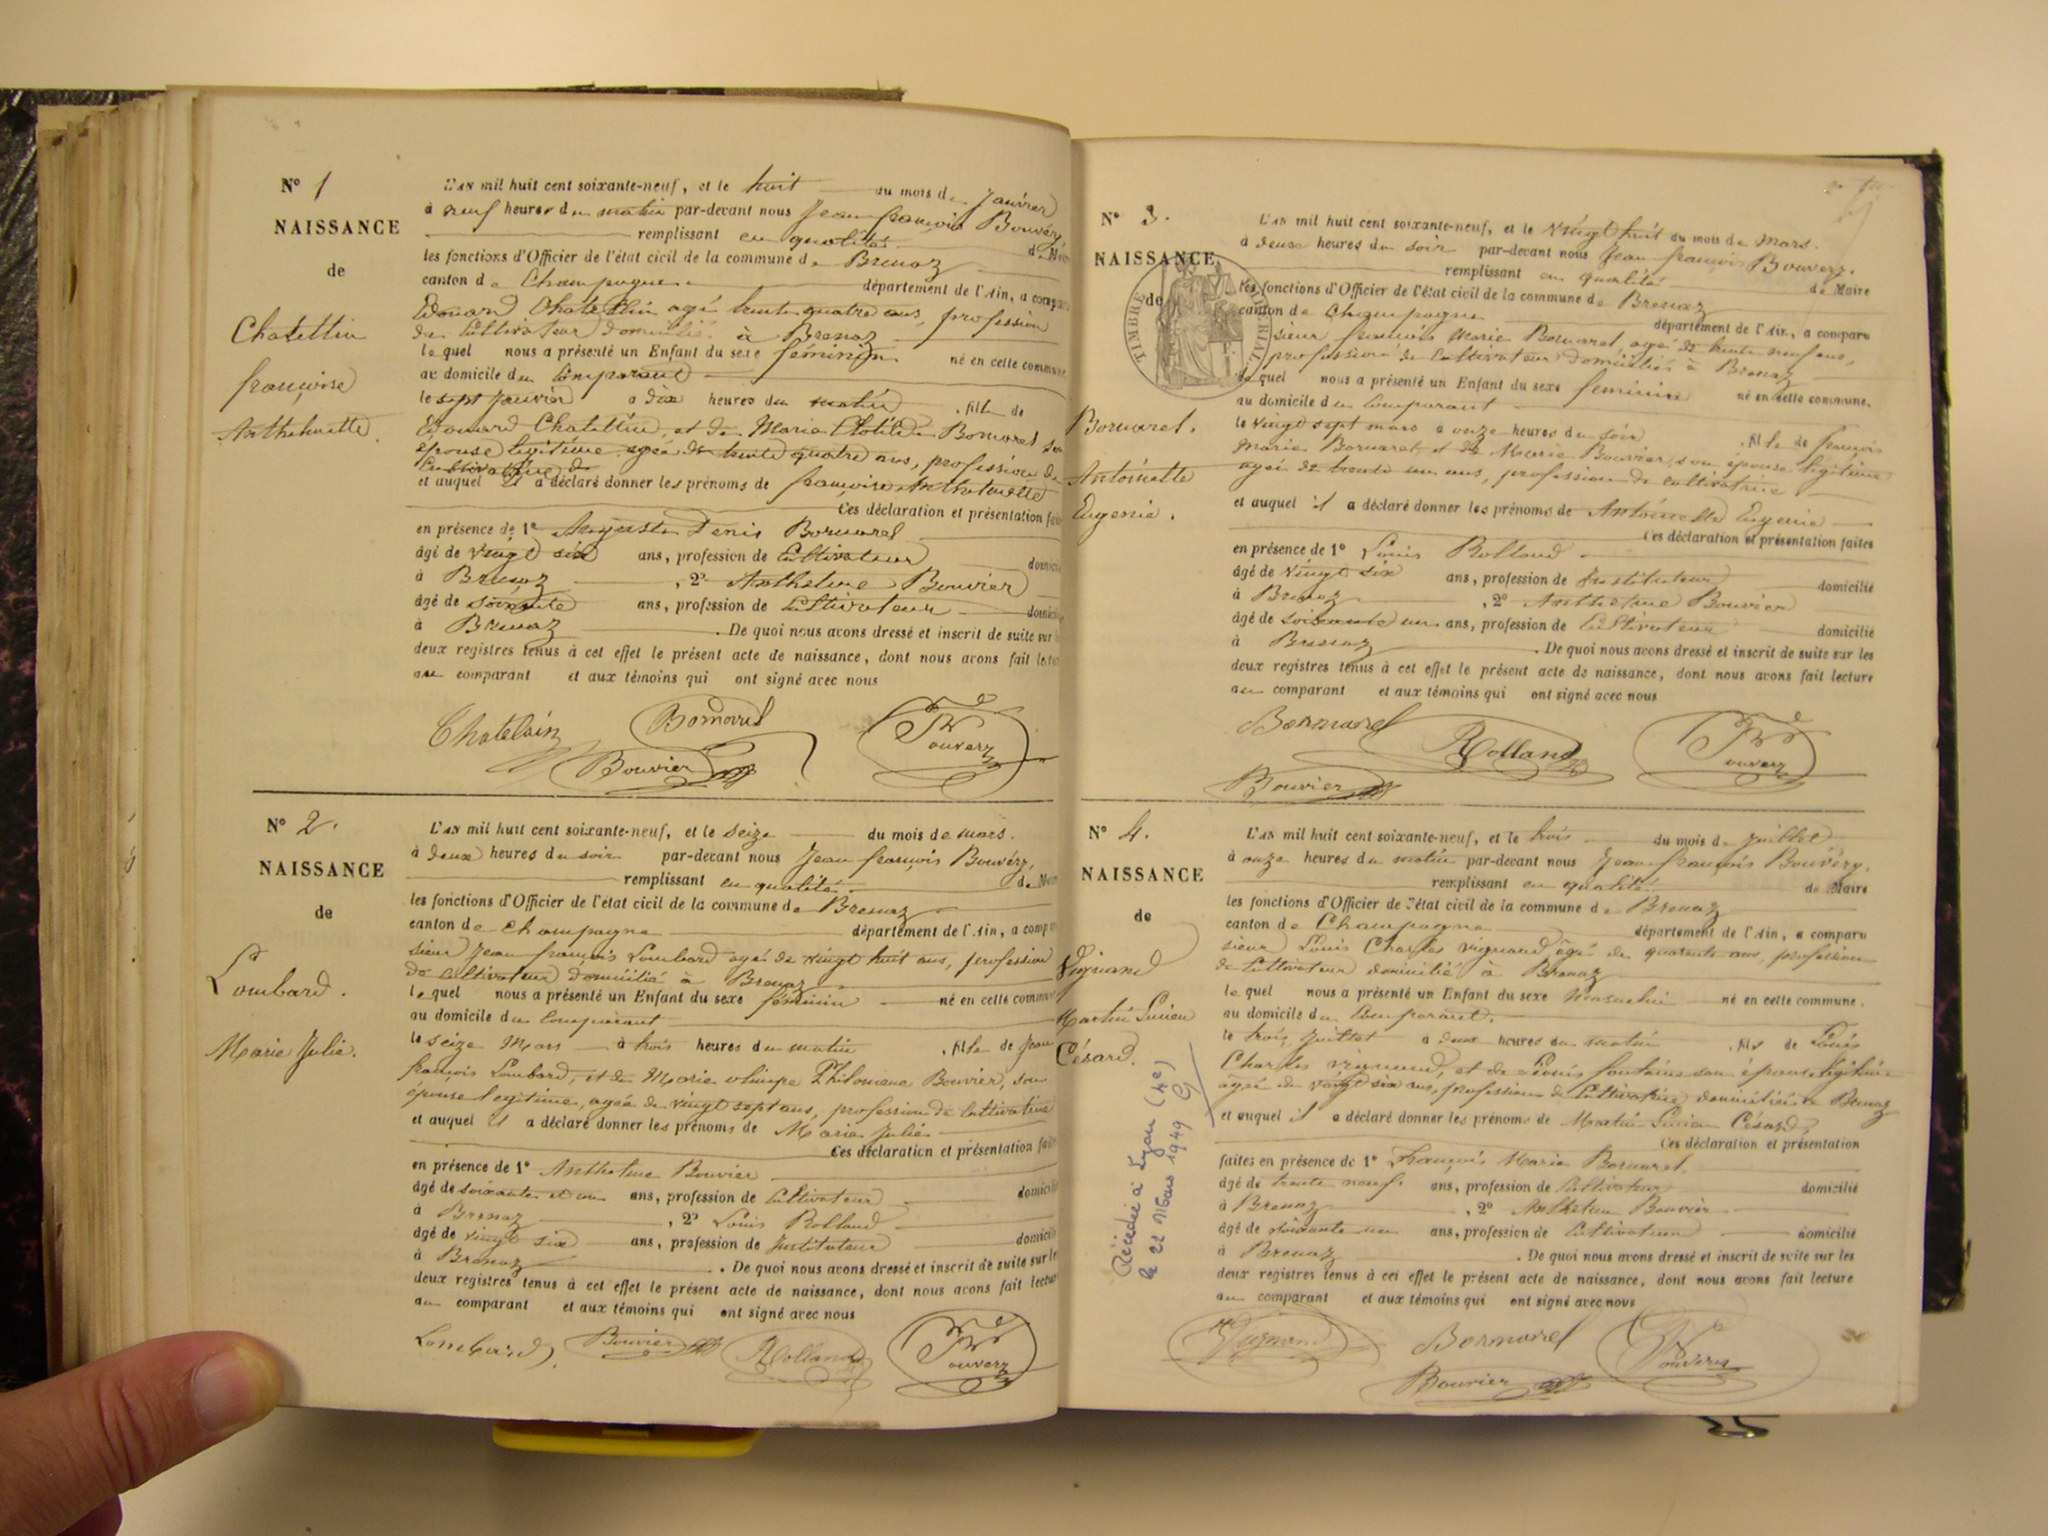 N° 1
NAISSANCE
de
Chatellin
françoise
Anthelmette.
L'AN mil huit cent soixante-neuf, et le huit du mois de Janvier
à neuf heures du matin par-devant nous Jean françois Bouvéry
remplissant en qualité de
les fonctions d'Officier de l'état civil de la commune de Brenaz
canton de Champagne département de l'Ain, a comparu
Edouard Chatellin agé trente quatre ans, profession
de Cultivateur domicilié à Brenaz
lequel nous a présenté un Enfant du sexe féminin né en cette commune
au domicile du Comparant
le sept janvier à dix heures du matin , fille de
Edouard Chatellin, et de Marie Clotilde Bornarel son
épouse légitime agée de trente quatre ans, profession de
Cultivatrice
et auquel il a déclaré donner les prénoms de françoise Anthelmette
Ces déclaration et présentation
en présence de 1° Auguste Denis Bornarel
âgé de vingt six ans, profession de Cultivateur
à Brenaz , 2° Anthelme Bouvier
âgé de soixante ans, profession de Cultivateur
à Brenaz . De quoi nous avons dressé et inscrit de suite sur
deux registres tenus à cet effet le présent acte de naissance, dont nous avons fait
au comparant et aux témoins qui ont signé avec nous
Chatelain Bornarel
Bouvier Bouvery
N° 2.
NAISSANCE
de
Lombard.
Marie Julie.
L'AN mil huit cent soixante-neuf, et le seize du mois de mars.
à deux heures du soir par-devant nous Jean françois Bouvéry,
remplissant en qualité de
les fonctions d'Officier de l'état civil de la commune de Brenaz
canton de Champagne département de l'Ain, a
sieur Jean françois Lombard agé de vingt huit ans, profession
de cultivateur domicilié à Brenaz
lequel nous a présenté un Enfant du sexe féminin né en cette
au domicile du Comparant
le seize Mars à trois heures du matin , fille de Jean
françois Lombard, et de Marie Philomène Bouvier, son
épouse légitime, agée de vingt sept ans, profession de Cultivatrice
et auquel il a déclaré donner les prénoms de Marie Julie
Ces déclaration et présentation
en présence de 1° Anthelme Bouvier
âgé de soixante et un ans, profession de Cultivateur
à Brenaz , 2° Louis Rolland
âgé de vingt six ans, profession de Instituteur
à Brenaz . De quoi nous avons dressé et inscrit de suite sur
deux registres tenus à cet effet le présent acte de naissance, dont nous avons fait lecture
au comparant et aux témoins qui ont signé avec nous
Lombard Bouvier Rolland Bouvery
N° 3.
NAISSANCE
de
TIMBRE IMPÉRIAL
Bornarel.
Antoinette
Eugenie.
L'AN mil huit cent soixante-neuf, et le vingt huit du mois de mars.
à deux heures du soir par-devant nous Jean françois Bouvery.
remplissant en qualité de Maire
les fonctions d'Officier de l'état civil de la commune de Brenaz
canton de Champagne département de l'Ain, a comparu
sieur françois Marie Bornarel agé de trente neuf ans,
profession de Cultivateur domicilié à Brenaz
lequel nous a présenté un Enfant du sexe féminin né en cette commune.
au domicile du Comparant
le vingt sept mars à onze heures du soir , fille de françois
Marie Bornarel, et de Marie Bouvier, son épouse légitime
agée de trente un ans, profession de cultivatrice
et auquel il a déclaré donner les prénoms de Antoinette Eugenie
Ces déclaration et présentation faites
en présence de 1° Louis Rolland
âgé de vingt six ans, profession de Instituteur domicilié
à Brenaz , 2° Anthelme Bouvier
âgé de soixante un ans, profession de Cultivateur domicilié
à Brenaz . De quoi nous avons dressé et inscrit de suite sur les
deux registres tenus à cet effet le présent acte de naissance, dont nous avons fait lecture
au comparant et aux témoins qui ont signé avec nous
Bornarel Rolland Bouvery
Bouvier
N° 4.
NAISSANCE
de
Vignand
Martin Lucien
Césard.
Décédé à Lyon (4e)
le 22 Mars 1949
L'AN mil huit cent soixante-neuf, et le trois du mois de juillet
à onze heures du matin par-devant nous Jean françois Bouvéry,
remplissant en qualité de Maire
les fonctions d'Officier de l'état civil de la commune de Brenaz
canton de Champagne département de l'Ain, a comparu
sieur Louis Charles Vignand âgé de quarante ans, profession
de Cultivateur domicilié à Brenaz
lequel nous a présenté un Enfant du sexe masculin né en cette commune.
au domicile du Comparant.
le trois juillet à deux heures du matin , fils de Louis
Charles Vignand, et de Louise fontaine son épouse légitime
âgée de vingt six ans, profession de Cultivatrice domiciliés à Brenaz
et auquel il a déclaré donner les prénoms de Martin Lucien Césard,
Ces déclaration et présentation
faites en présence de 1° françois Marie Bornarel
âgé de trente neuf ans, profession de Cultivateur domicilié
à Brenaz , 2° Anthelme Bouvier
âgé de soixante un ans, profession de Cultivateur domicilié
à Brenaz . De quoi nous avons dressé et inscrit de suite sur les
deux registres tenus à cet effet le présent acte de naissance, dont nous avons fait lecture
au comparant et aux témoins qui ont signé avec nous
Vignand Bornarel Bouvery
Bouvier